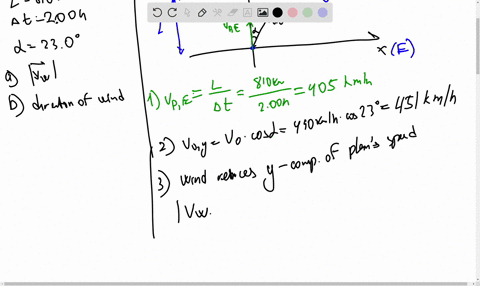 Δt = 2.00h
α = 23.0°
a) |V⃗w|
b) direction of wind
L
α
x (E)
1) Vp,E = L/Δt = 810km/2.00h = 405 km/h
2) V0,y = V0 · cosα = 490km/h · cos23° = 451 km/h
3) Wind reduces y-comp. of plain's speed
|Vw.